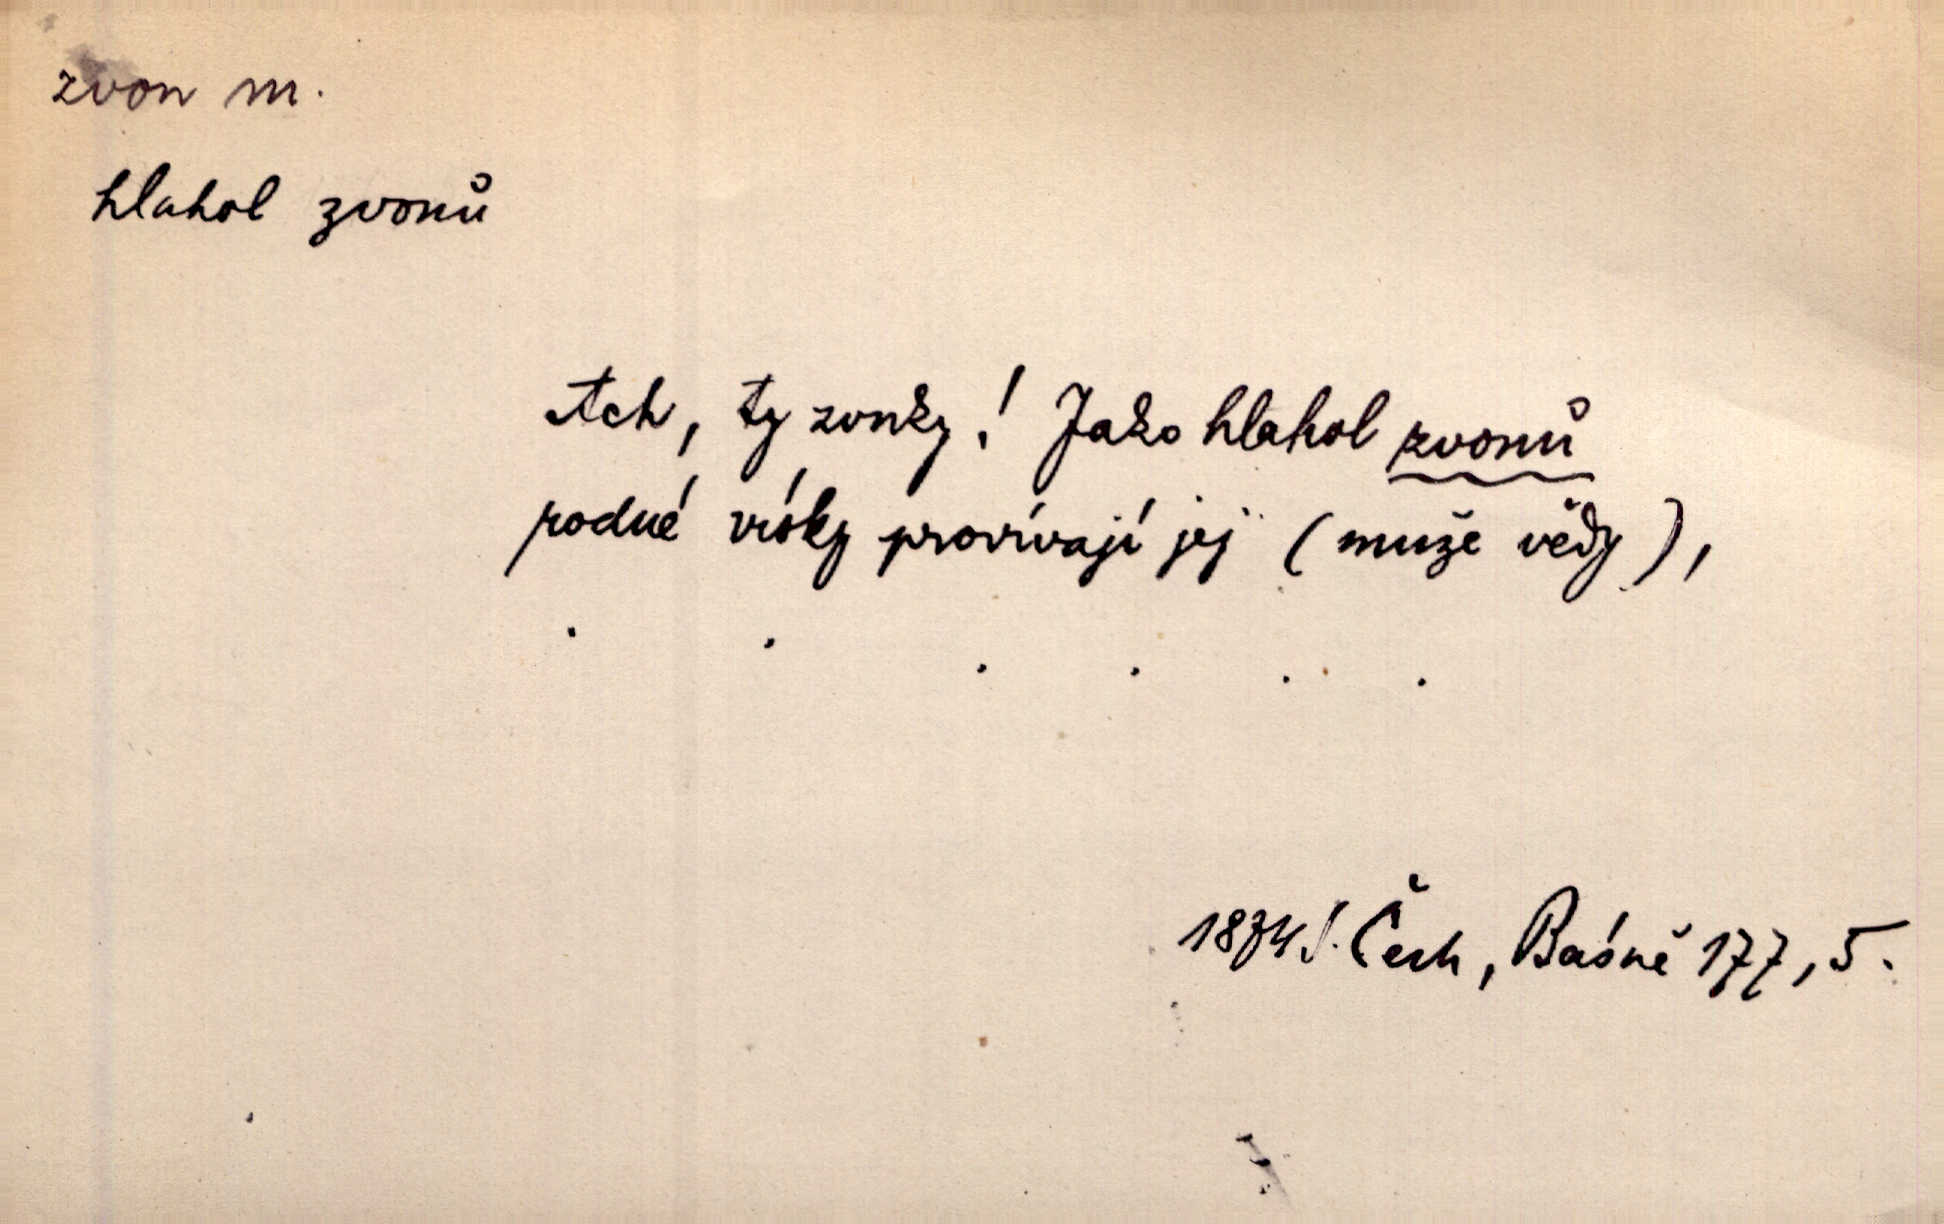 zvon m.
hlahol zvonů
Ach, ty zvuky! Jako hlahol zvonů
rodné vísky provívají jej (muže vědy),
. . . . . .
1874 S. Čech, Básně 177, 5.